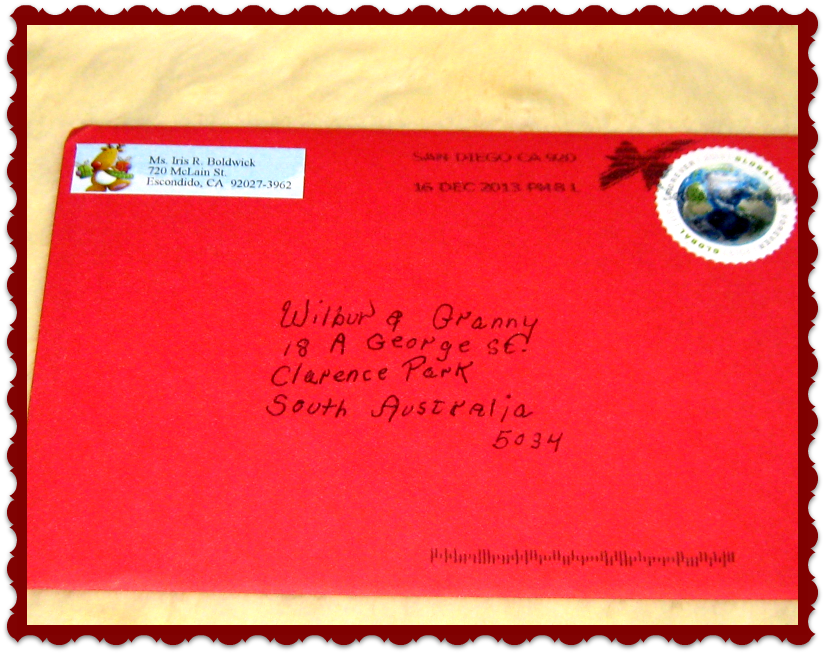 Ms. Iris R. Boldwick
720 McLain St.
Escondido, CA 92027-3962
SAN DIEGO CA 920
16 DEC 2013 PM 8 L
GLOBAL
FOREVER
GLOBAL
FOREVER
Wilbur & Granny
18 A George St.
Clarence Park
South Australia
5034